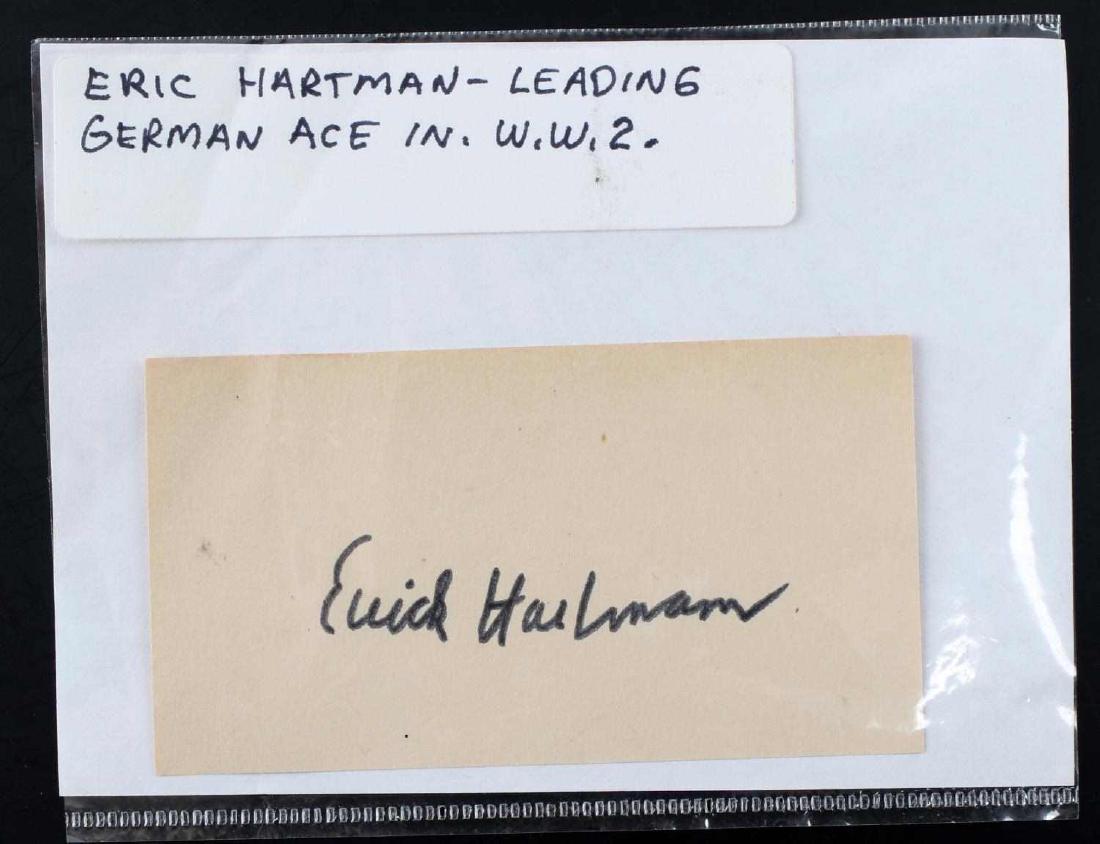 ERIC HARTMAN - LEADING
GERMAN ACE IN. W.W.2.
Erich Hartmann